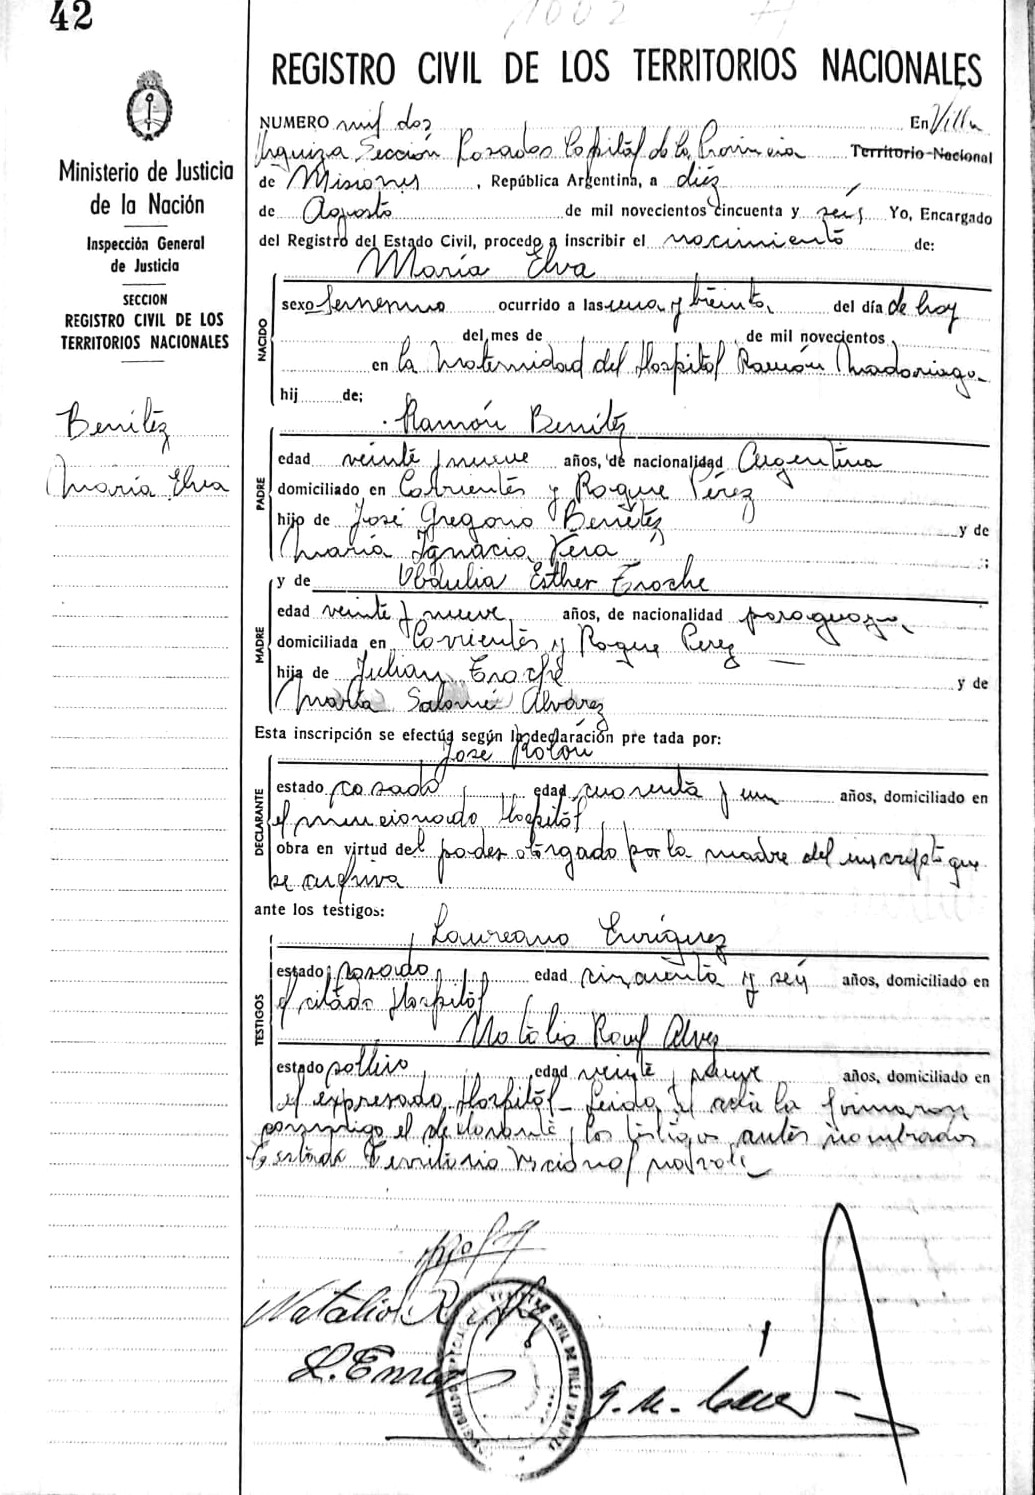 42
1002
REGISTRO CIVIL DE LOS TERRITORIOS NACIONALES
Ministerio de Justicia
de la Nación
Inspección General
de Justicia
SECCION
REGISTRO CIVIL DE LOS
TERRITORIOS NACIONALES
Benitez
María Elva
NUMERO mil dos En Villa
Urquiza Sección Posadas Capital de la Provincia Territorio Nacional
de Misiones, República Argentina, a diez
de Agosto de mil novecientos cincuenta y seis Yo, Encargado
del Registro del Estado Civil, procedo a inscribir el nacimiento de:
María Elva
NACIDO
sexo femenino ocurrido a las una y treinta, del día de hoy
del mes de de mil novecientos
en la Maternidad del Hospital Ramón Madariaga
hij de;
Ramón Benítez
PADRE
edad veinte y nueve años, de nacionalidad Argentina
domiciliado en Corrientes y Roque Pérez
hijo de José Gregorio Benítez y de
María Ignacia Vera
y de Obdulia Esther Troche
MADRE
edad veinte y nueve años, de nacionalidad paraguaya,
domiciliada en Corrientes y Roque Perez
hija de Julian Troche y de
María Salomé Alvarez
Esta inscripción se efectúa según la declaración pre tada por:
José Rolón
DECLARANTE
estado casado, edad cuarenta y un años, domiciliado en
el mencionado Hospital
obra en virtud del poder otorgado por la madre del inscripto que
se archiva
ante los testigos:
Laureano Enriquez
TESTIGOS
estado casado, edad cincuenta y seis años, domiciliado en
el citado Hospital
Natalio Raul Alvez
estado soltero, edad veinte y nueve años, domiciliado en
el expresado Hospital- Leida el acta la firmaron
conmigo el declarante y los testigos antes nombrados
Testado Territorio Nacional no vale
Natalio R. Alvez
L. Enriquez
REGISTRO CIVIL DE VILLA URQUIZA